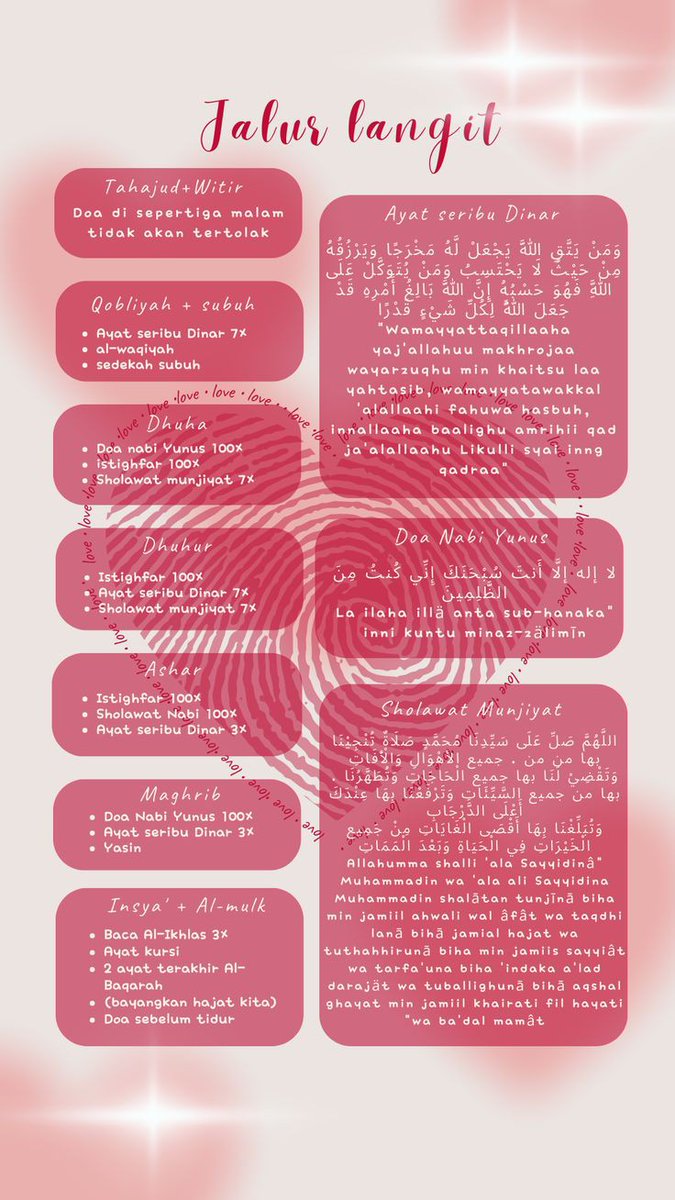 Jalur langit
Tahajud+Witir
Doa di sepertiga malam
tidak akan tertolak
Qobliyah + subuh
• Ayat seribu Dinar 7x
• al-waqiyah
• sedekah subuh
Dhuha
• Doa nabi Yunus 100x
• istighfar 100x
• Sholawat munjiyat 7x
Dhuhur
• Istighfar 100x
• Ayat seribu Dinar 7x
• Sholawat munjiyat 7x
Ashar
• Istighfar 100x
• Sholawat Nabi 100x
• Ayat seribu Dinar 3x
Maghrib
• Doa Nabi Yunus 100x
• Ayat seribu Dinar 3x
• Yasin
Insya' + Al-mulk
• Baca Al-Ikhlas 3x
• Ayat kursi
• 2 ayat terakhir Al-
Baqarah
• (bayangkan hajat kita)
• Doa sebelum tidur
Ayat seribu Dinar
وَمَنْ يَتَّقِ اللَّهَ يَجْعَلْ لَهُ مَخْرَجًا وَيَرْزُقْهُ
مِنْ حَيْثُ لَا يَحْتَسِبُ وَمَنْ يَتَوَكَّلْ عَلَى
اللَّهِ فَهُوَ حَسْبُهُ إِنَّ اللَّهَ بَالِغُ أَمْرِهِ قَدْ
جَعَلَ اللَّهُ لِكُلِّ شَيْءٍ قَدْرًا
"Wamayyattaqillaaha
yaj'allahuu makhrojaa
wayarzuqhu min khaitsu laa
yahtasib, wamayyatawakkal
'alallaahi fahuwa hasbuh,
innallaaha baalighu amrihii qad
ja'alallaahu Likulli syai inng
qadraa"
Doa Nabi Yunus
لا إله إلَّا أَنتَ سُبْحَنَكَ إِنِّي كُنتُ مِنَ
الظَّلِمِينَ
La ilaha illä anta sub-hanaka"
inni kuntu minaz-zälimīn
Sholawat Munjiyat
اللَّهُمَّ صَلِّ عَلَى سَيِّدِنَا مُحَمَّدٍ صَلَاةٌ تُنْجِيْنَا
بِها من من . جميع الْأَهْوَالِ وَالْآفَاتِ
وَتَقْضِيْ لَنَا بِها جميع الْحَاجَاتِ وَتُطَهِّرُنَا .
بها من جميع السَّيِّئَاتِ وَتَرْفَعُنَا بِهَا عِنْدَكَ
أَعْلَى الدَّرْجَابِ
وَتُبَلِّغُنَا بِهَا أَقْصَى الْغَايَاتِ مِنْ جَمِيعِ
الْخَيْرَاتِ فِي الْحَيَاةِ وَبَعْدَ الْمَمَاتِ
Allahumma shalli 'ala Sayyidinâ"
Muhammadin wa 'ala ali Sayyidina
Muhammadin shalātan tunjīnā biha
min jamiil ahwali wal âfât wa taqdhi
lanā bihā jamial hajat wa
tuthahhirunā biha min jamiis sayyiât
wa tarfa'una biha 'indaka a'lad
darajät wa tuballighunā bihā aqshal
ghayat min jamiil khairati fil hayati
"wa ba'dal mamât
love • love • love • love • love • love • love • love • love • love • love • love • love